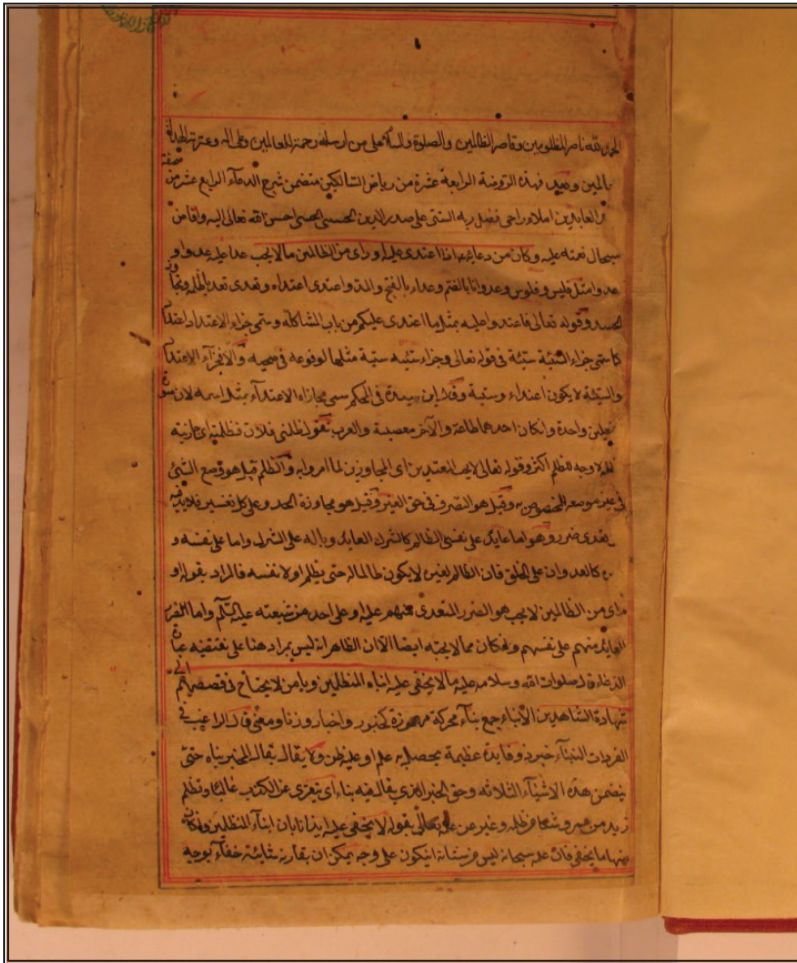 الحمد لله ناصر المظلومين وقاصر الظالمين والصلوة والسلام على من ارسله رحمة للعالمين وعلى اله وعترته
وبعد فهذه الروضة الرابعة عشرة من رياض السالكين متضمن شرح الدعاء الرابع عشر من
صحيفة
العابدين املاء راجى فضل ربه السنى على صدر الدين الحسينى الحسنى احسن الله تعالى اليه وافاض
سجال نعمته عليه وكان من دعائه اذا اعتدى عليه او راى من الظالمين ما لا يحب عدا عليه عدوا و
عدوا مثل فلس وفلوس وعدوانا بالضم وعداء بالفتح والمد واعتدى اعتداء وتعدى تعديا ظلم وتجاوز
الحد وقوله تعالى فاعتدوا عليه بمثل ما اعتدى عليكم من باب المشاكلة وسمى جزاء الاعتداء اعتداء
كما سمى جزاء السيئة سيئة فى قوله تعالى وجزاء سيئة سيئة مثلها لوقوعه فى صحبته والا فجزاء الاعتداء
والسيئة لا يكون اعتداء وسيئة وقال ابن سيدة فى المحكم سمى مجازاة الاعتداء بمثل اسمه لان صورة
الفعلين واحدة وان كان احدهما طاعة والآخر معصية والعرب تقول ظلمنى فلان فظلمته اى جازيته
بظلمه لا وجه للظلم اكثر وقوله تعالى لا يحب المعتدين اى المجاوزين لما امروا به والظلم قيل هو وضع الشئ
فى غير موضعه المختص به وقيل هو التصرف فى حق الغير وقيل هو مجاوزة الحد وعلى كل تفسير فلابد فيه
بعدى ضرر وهو اما عايد على نفس الظالم كالشرك العايد وباله على الشرك واما على نفسه و
كالعدوان على الخلق فان الظالم لغيره لا يكون ظالما له حتى يظلم اولا نفسه فالمراد بقوله او
راى من الظالمين لا يحب هو الضرر المتعدى منهم عليه او على احد من شيعته عليه السلام واما الضرر
العايد منهم على نفسهم وان كان مما لا يحبه ايضا الا ان الظاهر انه ليس بمراد هنا على
الدعاء قال صلوات الله وسلامه عليه يا من لا يخفى عليه انباء المتظلمين ويا من لا يحتاج فى قصصهم الى
شهادة الشاهدين الانباء جمع نباء محركة مهموزة كخبر واخبار وزنا ومعنى قال الراغب فى
المفردات النباء خبر ذو فايدة عظيمة يحصل به علم او غلبة ظن ولا يقال يقال للخبر نباء حتى
يتضمن هذه الاشياء الثلاثه وحق الخبر الذى يقال فيه نباء ان يتعرى عن الكذب غالبا وتظلم
زيد من عمرو شكا من ظلمه وعبر عن علمه تعالى بقوله لا يخفى عليه ايذانا بان انباء المتظلمين وان كان
منها ما يخفى فان علمه سبحانه ليس من شانه ان يكون على وجه يمكن ان يقارنه شائبة خفاء بوجه